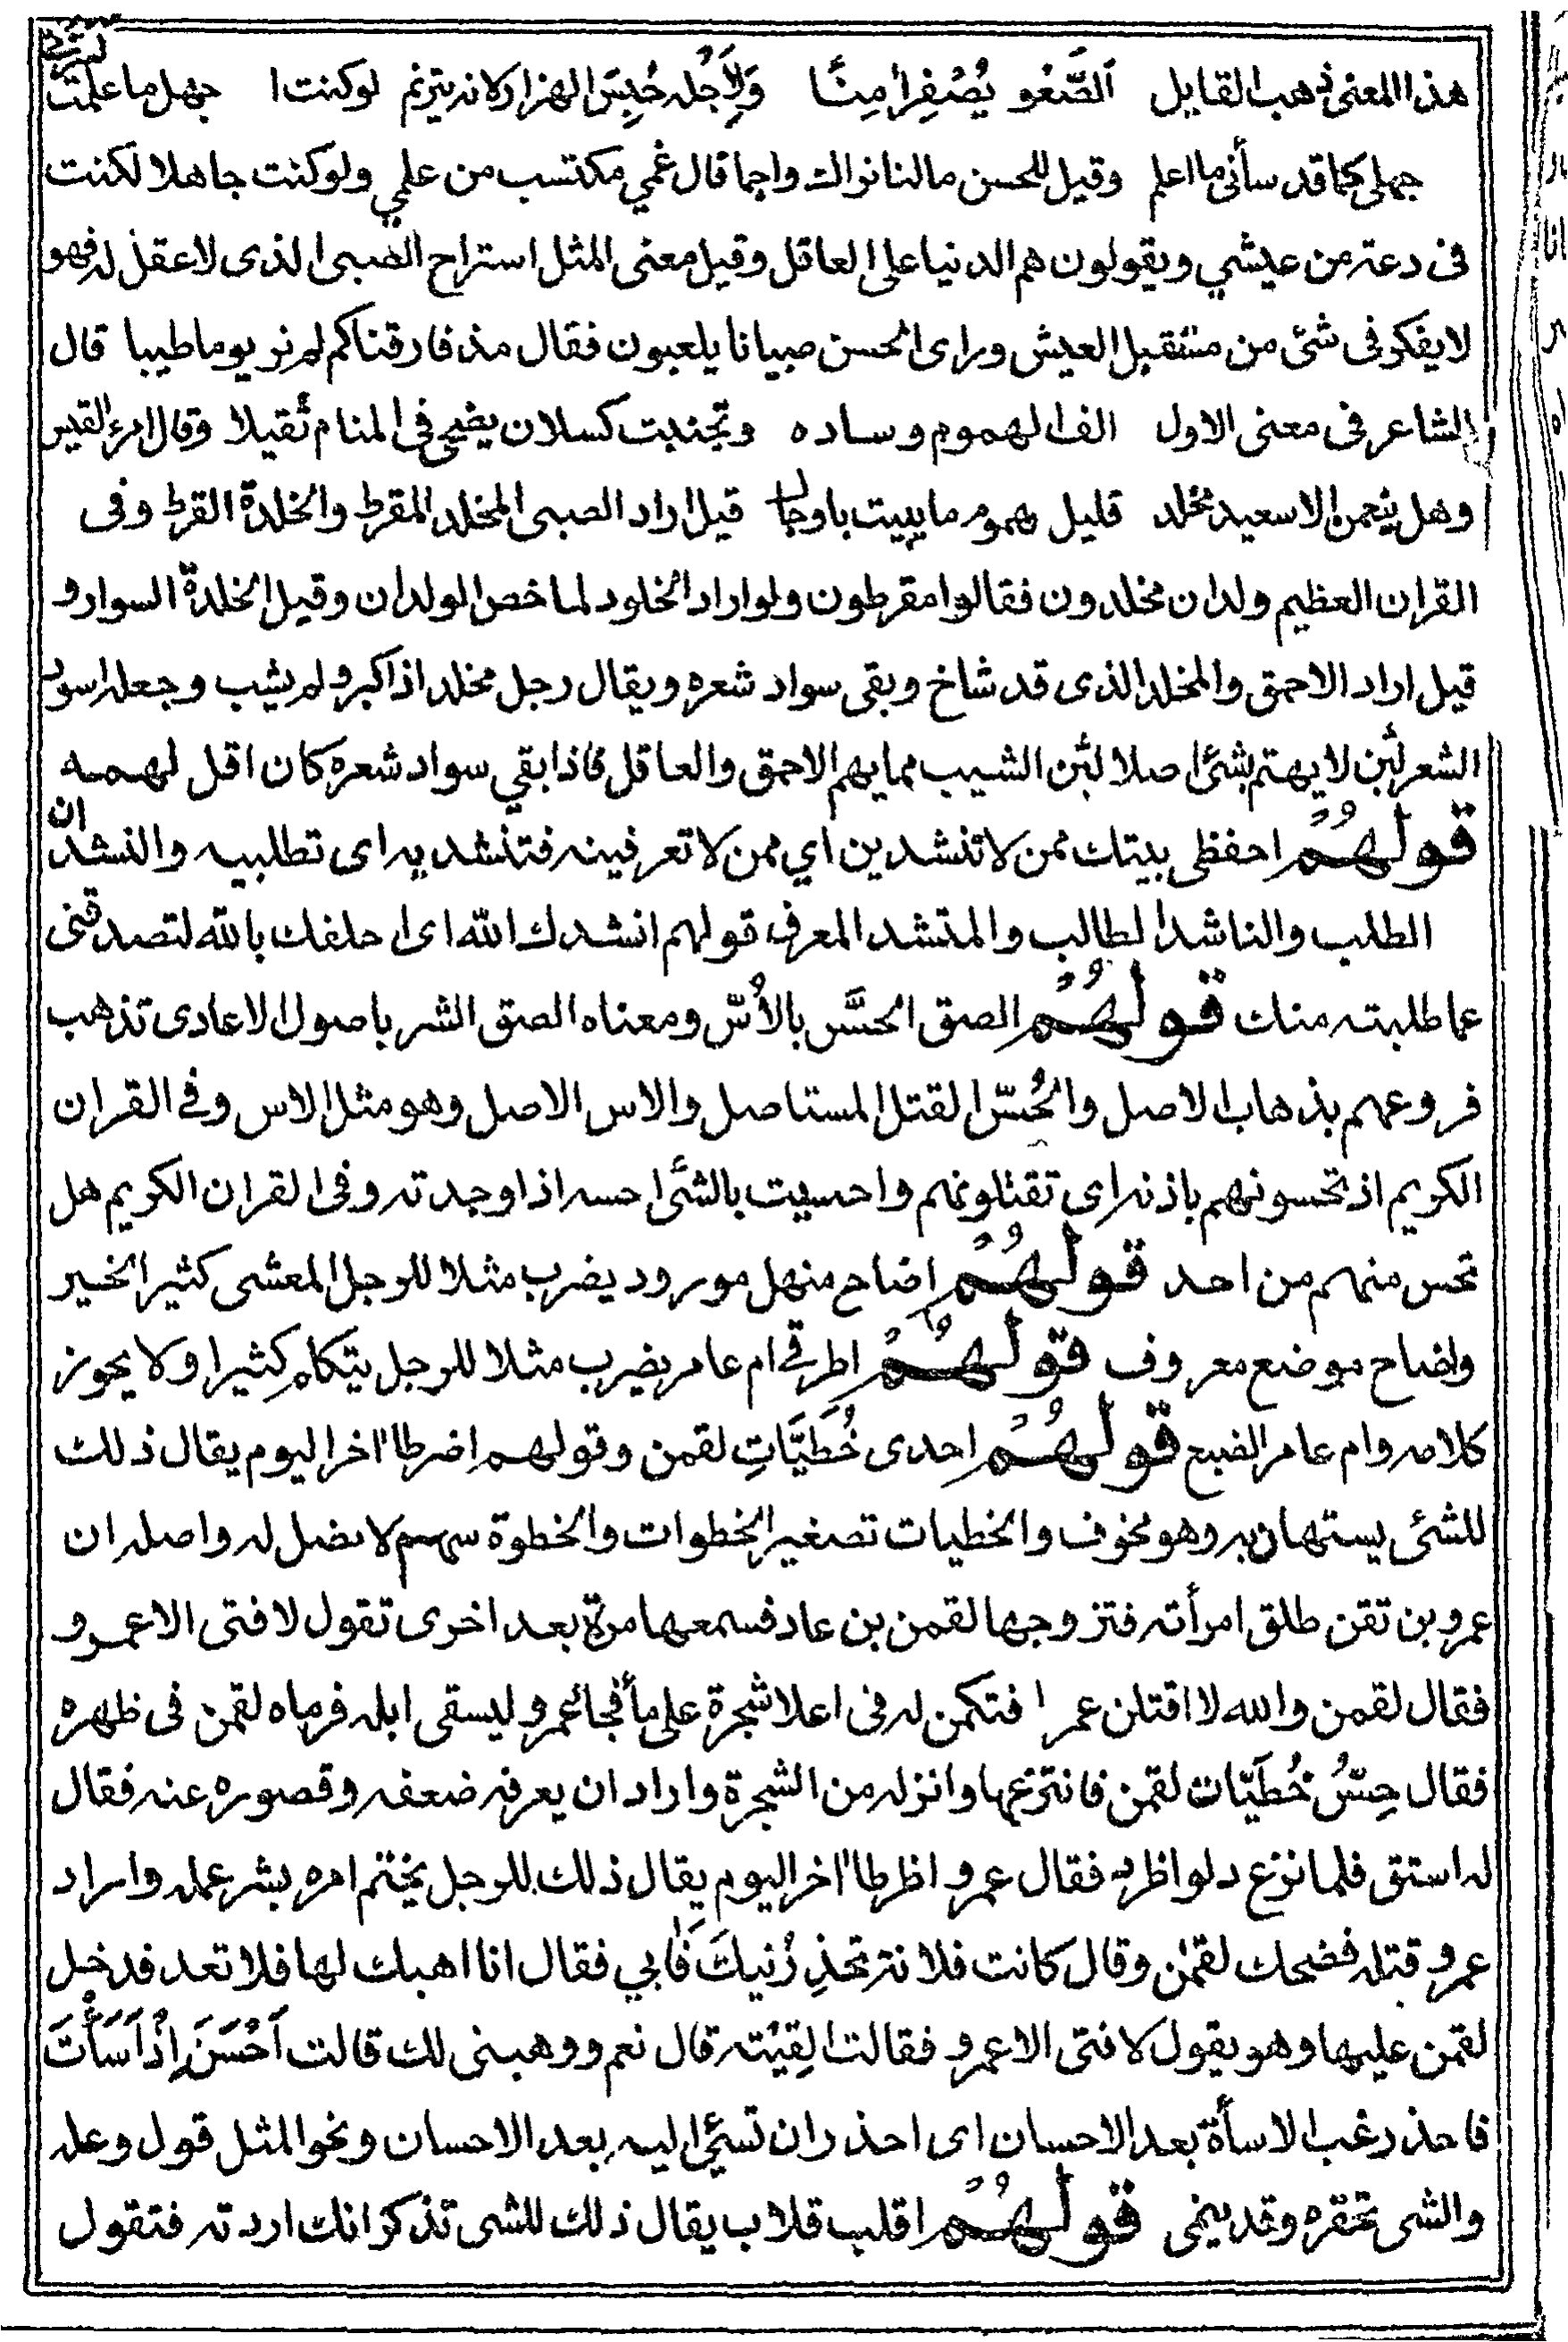 هذا المعنى ذهب القايل الصَّعْو يُصْفِرُ اٰمِنًا وَلِاَجْله حُبِسَ الهزار لانه يترنم لو كنت اجهل ما علمت لسرني
جهلى كما قد سأنى ما اعلم وقيل للحسن ما لنا نراك واجما قال غمي مكتسب من علمي ولو كنت جاهلا لكنت
فى دعة من عيشي ويقولون هم الدنيا على العاقل وقيل معنى المثل استراح الصبى الذى لا عقل له فهو
لا يفكر فى شئ من مستقبل العيش وراى الحسن صبيانا يلعبون فقال مذ فارقناكم لم نر يوما طيبا قال
الشاعر فى معنى الاول الف الهموم وساده وتجنبت كسلان يضحى فى المنام ثقيلا وقال امرء القيس
وهل ينعمن الا سعيد مخلد قليل هموم ما يبيت باوجال قيل اراد الصبى المخلد المقرط والخلدة القرط وفى
القران العظيم ولدان مخلدون فقالوا مقرطون ولو اراد الخلود لما خص الولدان وقيل الخلدة السوار و
قيل اراد الاحمق والمخلد الذى قد شاخ وبقى سواد شعره ويقال رجل مخلد اذا كبر ولم يشب وجعله اسود
الشعر لئن لا يهتم بشئ اصلا لئن الشيب مما يهم الاحمق والعاقل فاذا بقي سواد شعره كان اقل لهمه
قولهُم احفظى بيتك ممن لا تنشدين اي ممن لا تعرفينه فتنشديه اى تطلبيه والنشدان
الطلب والناشد الطالب والمنشد المعرف قولهم انشدك الله اى احلفك بالله لتصدقنى
عما طلبته منك قولهُم الصق الحَسَّ بالاُسّ ومعناه الصق الشر باصول الاعادى تذهب
فروعهم بذهاب الاصل والحُسّ القتل المستاصل والاس الاصل وهو مثل الاس وفي القران
الكريم اذ تحسونهم باذنه اى تقتلونهم واحسيت بالشئ احسه اذا وجدته وفى القران الكريم هل
تحس منهم من احد قولهُم اضاح منهل مورود يضرب مثلا للرجل المعشى كثير الخير
واضاح موضع معروف قولهُم اطرقي ام عامر يضرب مثلا للرجل يتكلم كثيرا ولا يجوز
كلامه وام عامر الضبع قولهُم احدى خُطَيَّاتِ لقمن وقولهم اضرطا اخر اليوم يقال ذلك
للشئ يستهان به وهو مخوف والخطيات تصغير الخطوات والخطوة سهم لا نصل له واصله ان
عمرو بن تقن طلق امرأته فتزوجها لقمن بن عاد فسمعها مرة بعد اخرى تقول لا فتى الا عمرو
فقال لقمن والله لا اقتلن عمرا فتكمن له فى اعلا شجرة على مأ فجا عمرو ليسقى ابله فرماه لقمن فى ظهره
فقال حِسّ خُطَيّات لقمن فانتزعها وانزله من الشجرة واراد ان يعرفه ضعفه وقصوره عنه فقال
له استق فلما نزع دلوا ظرط فقال عمرو اظرطا اخر اليوم يقال ذلك للرجل يختم امره بشر عمله واراد
عمرو قتله فضحك لقمٰن وقال كانت فلانة تحذرنيكَ فَاٰبي فقال انا اهبك لها فلا تعد فدخل
لقمن عليها وهو يقول لا فتى الا عمرو فقالت الِقيْته قال نعم ووهبنى لك قالت اَحْسَنَ اِذْ اَسَأْتَ
فاحذر غب الاسأة بعد الاحسان اى احذر ان تسئ اليه بعد الاحسان ونحو المثل قول وعله
والشى تحقره وقد ينمى قولهُم اقلب قلاب يقال ذلك للشى تذكر انك اردته فتقول